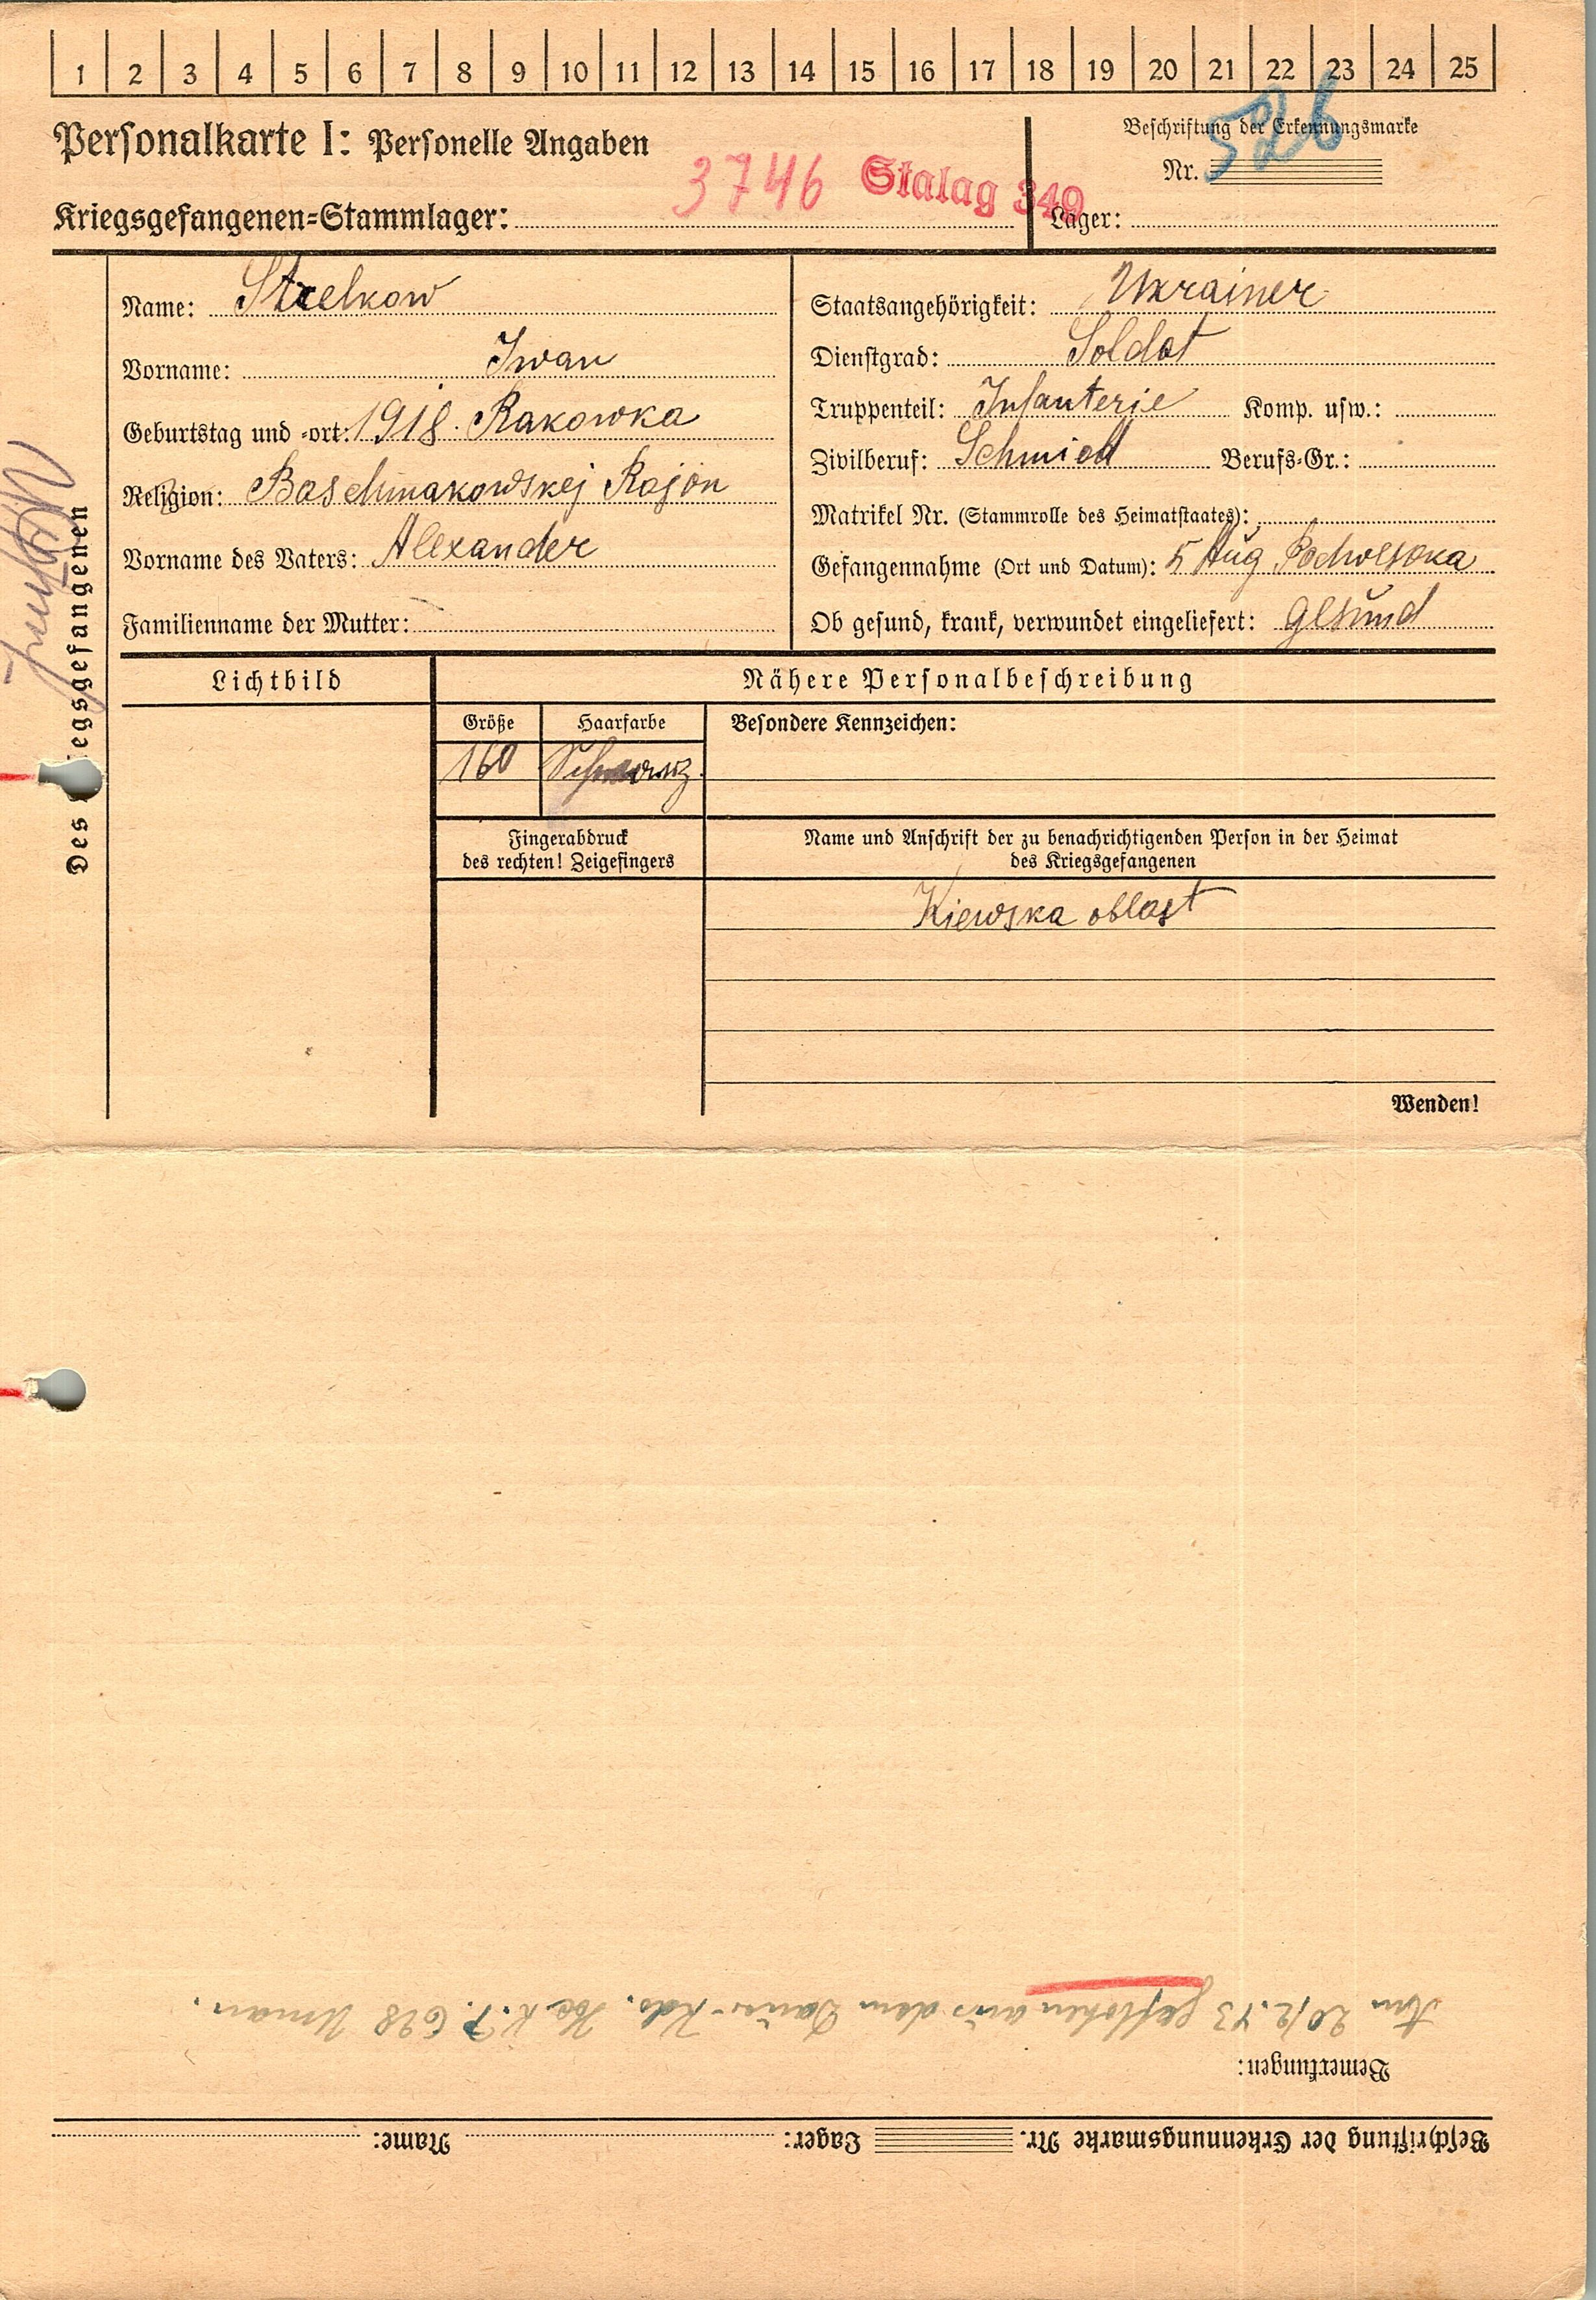 1 2 3 4 5 6 7 8 9 10 11 12 13 14 15 16 17 18 19 20 21 22 23 24 25
Personalkarte I: Personelle Angaben
3746 Stalag 349
Kriegsgefangenen-Stammlager:
Beschriftung der Erkennungsmarke
Nr. 526
Lager:
Des Kriegsgefangenen
Name: Strelkow
Vorname: Iwan
Geburtstag und -ort: 1918. Rakowka
Religion: Baschmakowskej Rajon
Vorname des Vaters: Alexander
Familienname der Mutter:
Staatsangehörigkeit: Ukrainer
Dienstgrad: Soldat
Truppenteil: Infanterie Komp. usw.:
Zivilberuf: Schmied Berufs-Gr.:
Matrikel Nr. (Stammrolle des Heimatstaates):
Gefangennahme (Ort und Datum): 5 Aug Podwysoka
Ob gesund, krank, verwundet eingeliefert: gesund
Lichtbild
Nähere Personalbeschreibung
Größe Haarfarbe Besondere Kennzeichen:
160 Schwarz
Fingerabdruck
des rechten! Zeigefingers
Name und Anschrift der zu benachrichtigenden Person in der Heimat
des Kriegsgefangenen
Kiewska oblast
Wenden!
Beschriftung der Erkennungsmarke Nr. Lager: Name:
Bemerkungen:
Am 20/2.43 geflohen aus dem Dauer-Kdo. 628 Uman.